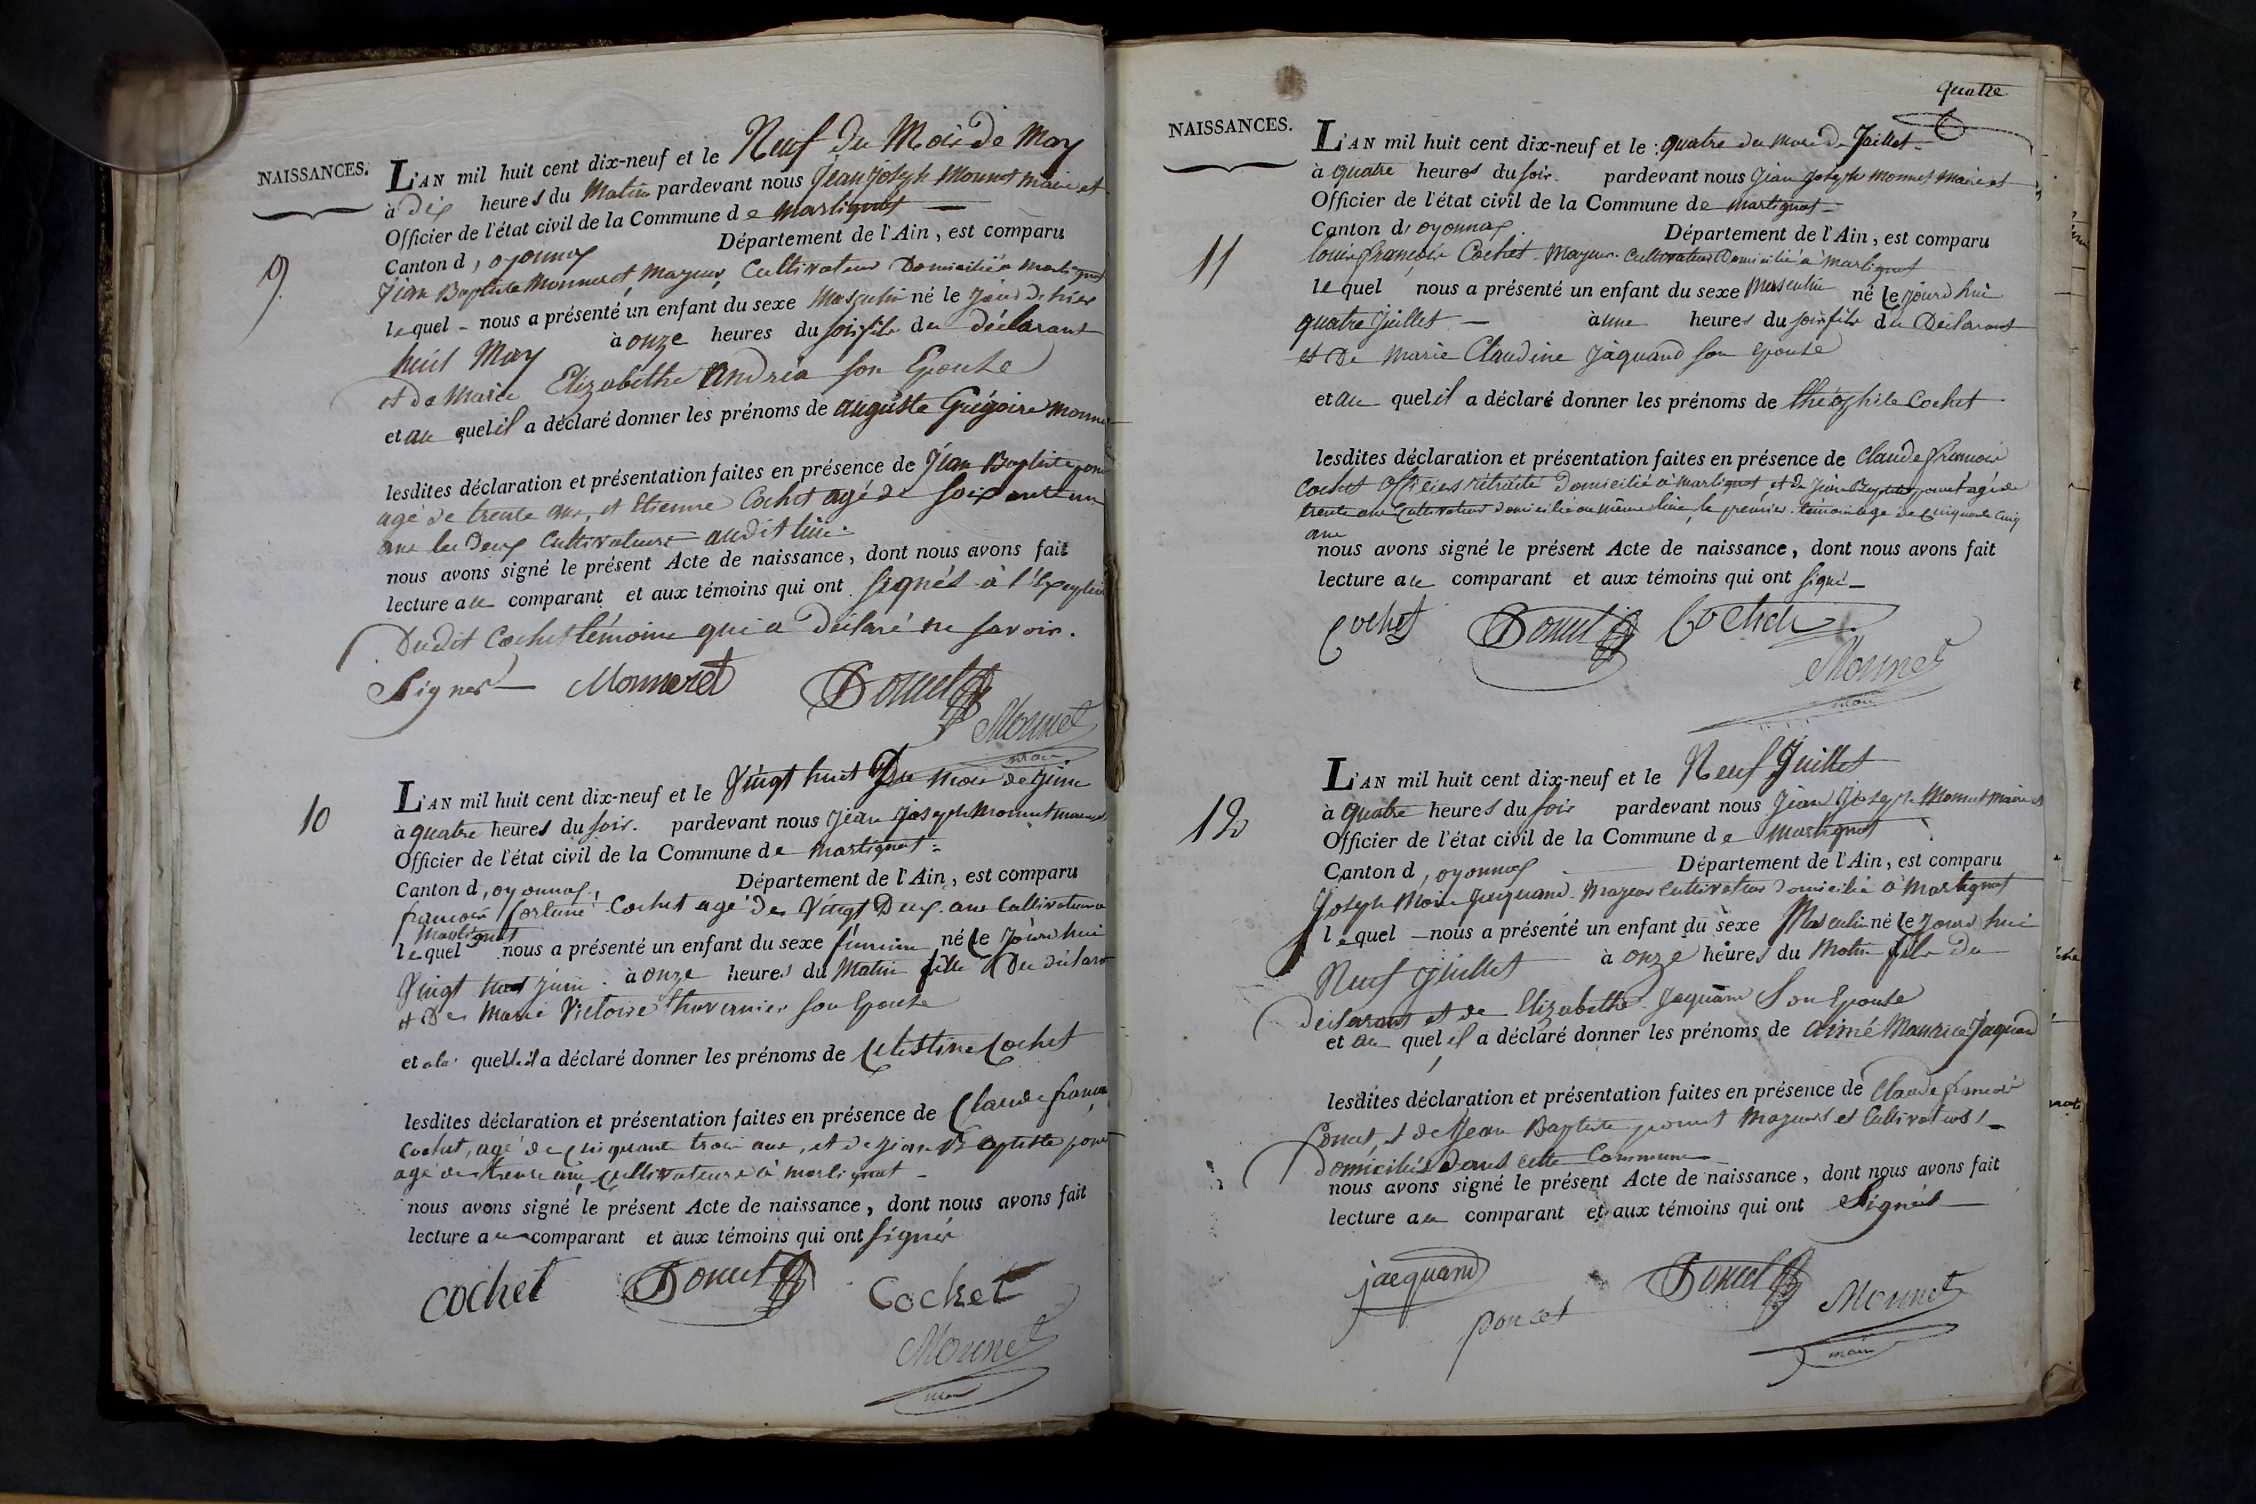 NAISSANCES.
L'AN mil huit cent dix-neuf et le Neuf du Mois de May
à dix heures du Matin pardevant nous Jean Joseph Monnet maire et
Officier de l'état civil de la Commune de Martignat
Canton d'oyonnax Département de l'Ain, est comparu
9
Jean Baptiste Monneret, Majeur, Cultivateur Domicilié à Martignat
lequel nous a présenté un enfant du sexe Masculin né le jour de hier
huit May à onze heures du soir fils du déclarant
et de Marie Elizabethe Andréa son Epouse
et au quel il a déclaré donner les prénoms de auguste Grégoire
lesdites déclaration et présentation faites en présence de Jean Baptiste
agé de trente ans, et Etienne Cochet agé de soixante un
ans les Deux Cultivateurs audit lieu
nous avons signé le présent Acte de naissance, dont nous avons fait
lecture au comparant et aux témoins qui ont signés à l'
Dudit Cochet témoin qui a Déclaré ne savoir.
Signer Monneret Poncet
Monnet
maire
10
L'AN mil huit cent dix-neuf et le Vingt huit Du Mois de Juin
à quatre heures du soir. pardevant nous Jean Joseph Monnet
Officier de l'état civil de la Commune de Martignat
Canton d'oyonnax, Département de l'Ain, est comparu
françois fortuné Cochet agé de Vingt Deux ans Cultivateur a
Martignat
lequel nous a présenté un enfant du sexe féminin né le Jourd'hui
Vingt huit juin à onze heures du Matin fille Du
et De Marie Victoire thevernier son Epouse
et a la quelle il a déclaré donner les prénoms de Célestine Cochet
lesdites déclaration et présentation faites en présence de Claude
Cochet, agé de Cinquante trois ans, et de Jean Baptiste
agé de trente ans Cultivateurs à Martignat
nous avons signé le présent Acte de naissance, dont nous avons fait
lecture au comparant et aux témoins qui ont signés
Cochet Poncet Cochet
Monnet
quatre
NAISSANCES.
L'AN mil huit cent dix-neuf et le quatre du mois de Juillet
à quatre heures du soir. pardevant nous Jean Joseph Monnet Maire et
Officier de l'état civil de la Commune de Martignat
Canton d'oyonnax. Département de l'Ain, est comparu
11
louis françois Cochet Majeur Cultivateur Domicilié à Martignat
lequel nous a présenté un enfant du sexe Masculin né le jourd'hui
quatre Juillet à une heures du soir fils du Déclarant
et De Marie Claudine Jaquand son Epouse
et au quel il a déclaré donner les prénoms de théophile Cochet
lesdites déclaration et présentation faites en présence de Claude françois
Cochet Officier rétraité Domicilié à Martignat, et de Jean Baptiste poncet agé de
trente ans Cultivateur domicilié au même lieu, le premier témoin agé de Cinquante Cinq
ans
nous avons signé le présent Acte de naissance, dont nous avons fait
lecture au comparant et aux témoins qui ont signé
Cochet Poncet Cochet
Monnet
maire
L'AN mil huit cent dix-neuf et le Neuf Juillet
12
à quatre heures du soir pardevant nous Jean Joseph Monnet Maire et
Officier de l'état civil de la Commune de Martignat
Canton d'oyonnax Département de l'Ain, est comparu
Joseph Marie Jacquand Majeur Cultivateur domicilié à Martignat
lequel nous a présenté un enfant du sexe Masculin né le Jourd'hui
Neuf Juillet à onze heures du Matin fils du
déclarant et de Elizabethe Jaquand Son Epouse
et au quel il a déclaré donner les prénoms de aimé Maurice Jaquand
lesdites déclaration et présentation faites en présence de Claude françois
Poncet, et de Jean Baptiste poncet Majeurs et Cultivateurs
domiciliés dans cette Commune
nous avons signé le présent Acte de naissance, dont nous avons fait
lecture au comparant et aux témoins qui ont Signés
jacquand poncet Poncet Monnet
maire